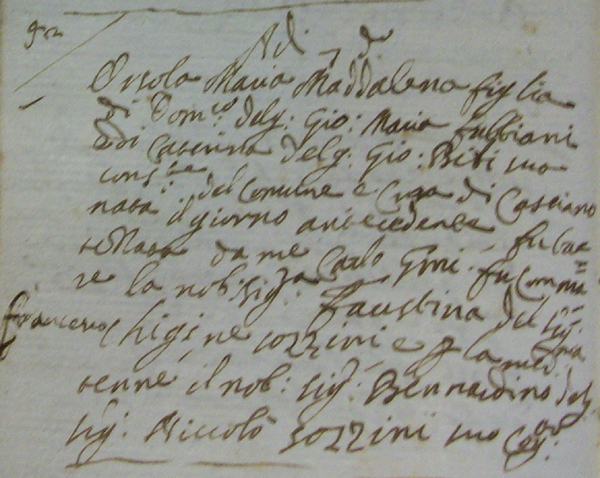 Adi 7 d
Orsola Maria Maddalena figlia
di Dom.co del q: Gio: Maria Fabbiani
e di Caterina del q: Gio: Bibi sua
cons.te del Comune e Cura di Casciano
nata il giorno antecedente fu bat
tezzata da me Carlo Gini fu Comma
re la nob: Sig.ra Faustina del Sig:
Francesco Chigi ne Sozzini e p la med.ma
tenne il nob: Sig: Bernardino del
Sig: Niccolò Sozzini suo